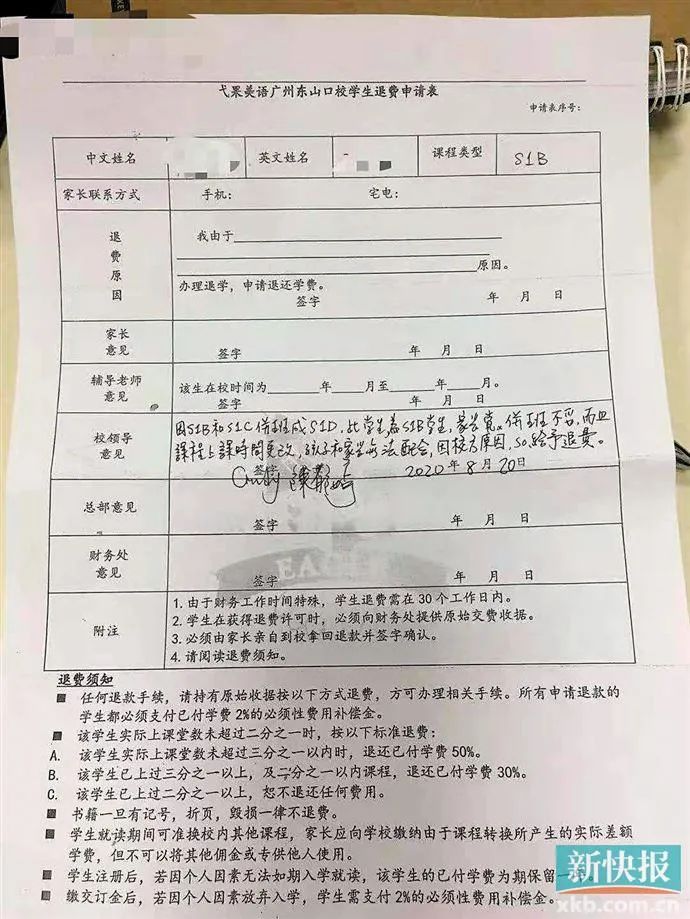 弋果美语广州东山口校学生退费申请表
申请表序号:
中文姓名 英文姓名 课程类型 S1B
家长联系方式 手机: 宅电:
退费原因
我由于
原因。
办理退学，申请退还学费。
签字 年 月 日
家长意见
签字 年 月 日
辅导老师意见
该生在校时间为 年 月至 年 月。
签字 年 月 日
校领导意见
因S1B和S1C併班成S1D，此学生為S1B学生，家长 併班不 而且
課程上課時間更改，孩子和家长无法配合，因校方原因，so給予退費。
签字 陳 2020年8月20日
总部意见
签字 年 月 日
财务处意见
签字 年 月 日
EAGLE
附注
1. 由于财务工作时间特殊，学生退费需在30个工作日内。
2. 学生在获得退费许可时，必须向财务处提供原始交费收据。
3. 必须由家长亲自到校拿回退款并签字确认。
4. 请阅读退费须知。
退费须知
■ 任何退款手续，请持有原始收据按以下方式退费，方可办理相关手续。所有申请退款的
学生都必须支付已付学费2%的必须性费用补偿金。
■ 该学生实际上课堂数未超过二分之一时，按以下标准退费:
A. 该学生实际上课堂数未超过三分之一以内时，退还已付学费50%。
B. 该学生已上过三分之一以上，及二分之一以内课程，退还已付学费30%。
C. 该学生已上过二分之一以上，恕不退还任何费用。
■ 书籍一旦有记号，折页，毁损一律不退费。
■ 学生就读期间可准换校内其他课程，家长应向学校缴纳由于课程转换所产生的实际差额
学费，但不可以将其他佣金或专供他人使用。
■ 学生注册后，若因个人因素无法如期入学就读，该学生的已付学费为期保留一
■ 缴交订金后，若因个人因素放弃入学，学生需支付2%的必须性费用补偿金。
新快报
xkb.com.cn